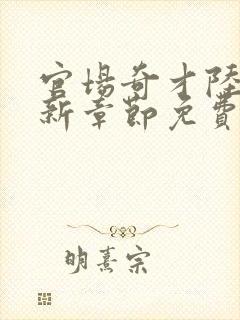 官場奇才陸
新章節免費
明熹宗